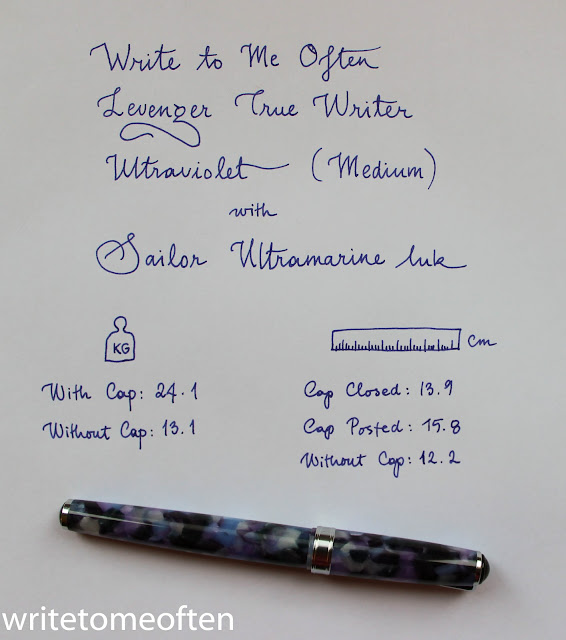 Write to Me Often
Levenger True Writer
Ultraviolet (Medium)
with
Sailor Ultramarine Ink
KG
cm
With Cap: 24.1
Without Cap: 13.1
Cap Closed: 13.9
Cap Posted: 15.8
Without Cap: 12.2
writetomeoften